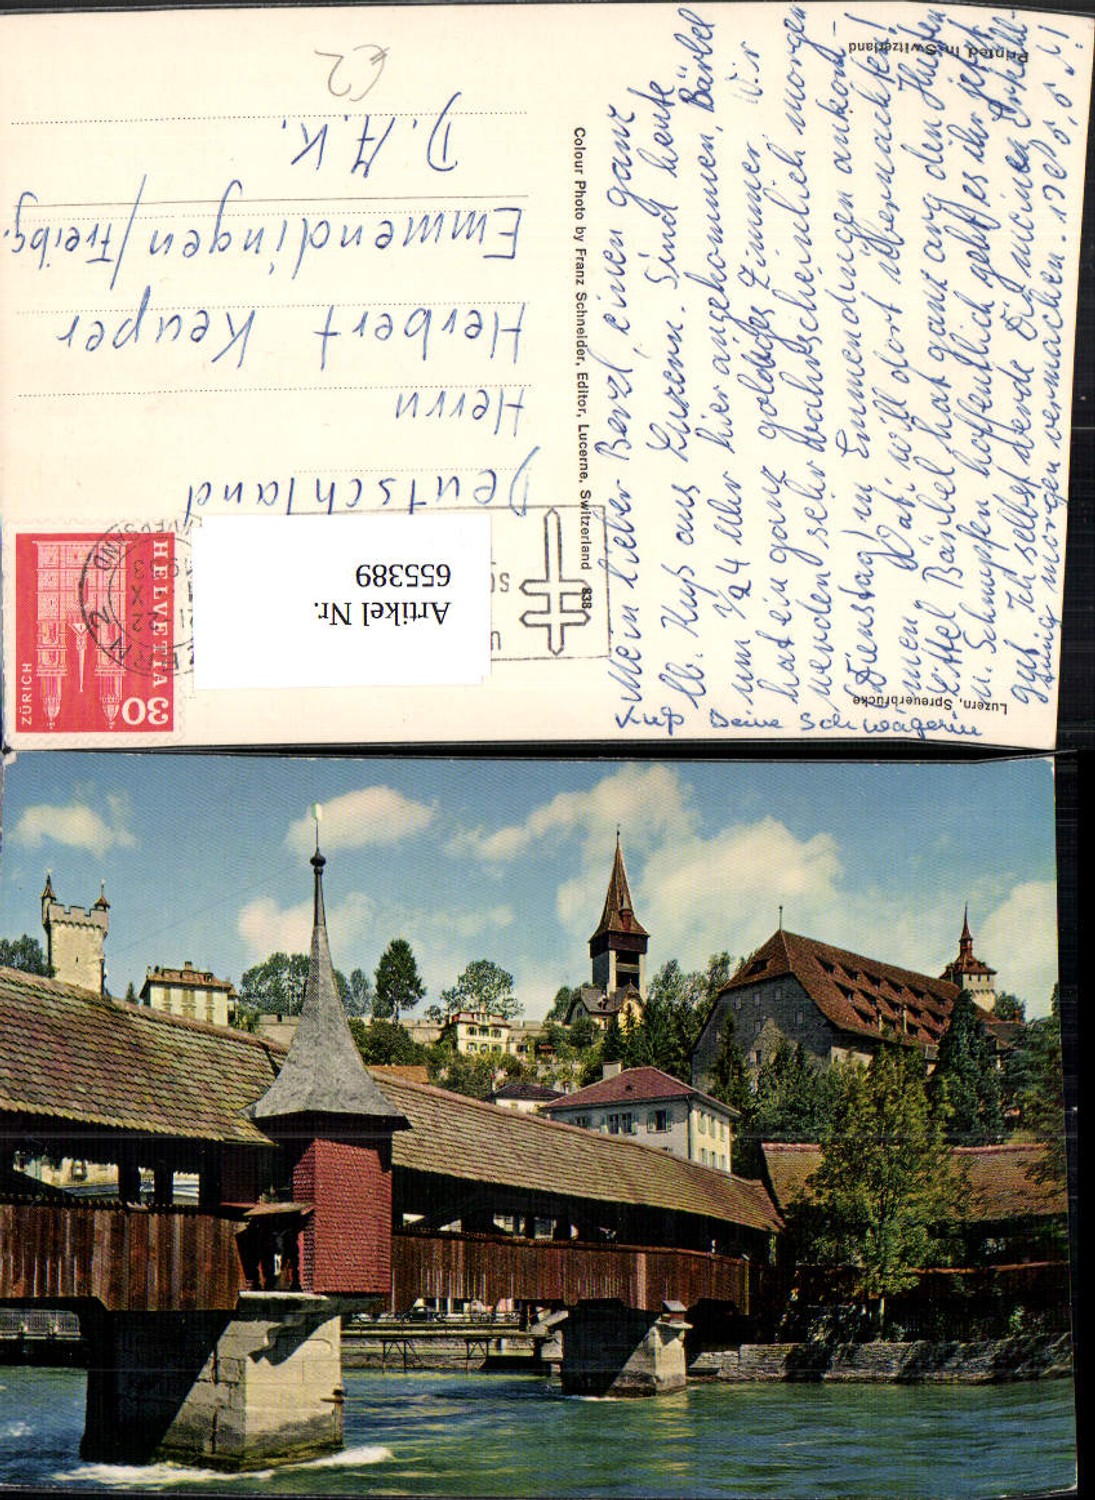 Luzern, Spreuerbrücke
Mein lieber Berzl, einen ganz
lb. Kuß aus Luzern. Sind heute
um 1/2 4 Uhr hier angekommen, Bärbel
hat ein ganz goldiges Zimmer. Wir
werden sehr wahrscheinlich morgen
(Dienstag) in Emmendingen ankom-
men, will dort übernachten!
Bärbel hat ganz arg den Husten
u. Schnupfen hoffentlich geht es ihr jetzt
gut. Ich selbst werde Dich meinen
morgen vermachen.
Kuß Deine Schwägerin
Printed in Switzerland
Colour Photo by Franz Schneider, Editor, Lucerne, Switzerland
838
HELVETIA
30
ZÜRICH
22 X
Artikel Nr.
655389
Deutschland
Herrn
Herbert Keuper
Emmendingen/Freibg.
D.A.K.
€2